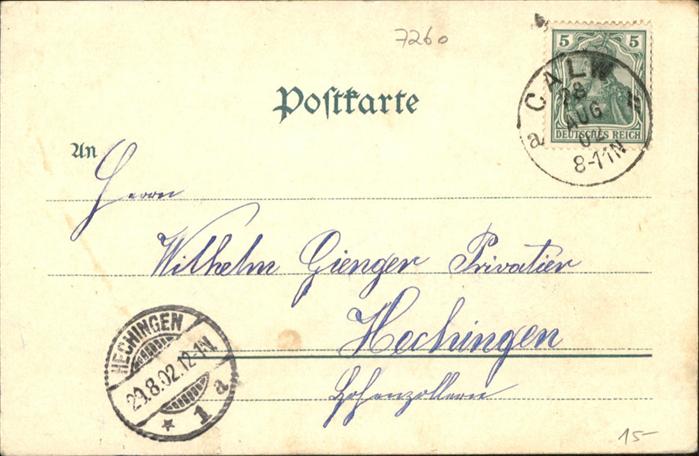 7260
5 5
DEUTSCHES REICH
CALW
28
AUG
02
8-11N
a
Postkarte
An
Herrn
Wilhelm Gienger Privatier
Hechingen
Hohenzollern
HECHINGEN
29.8.02.12-1N.
* 1 a
15-